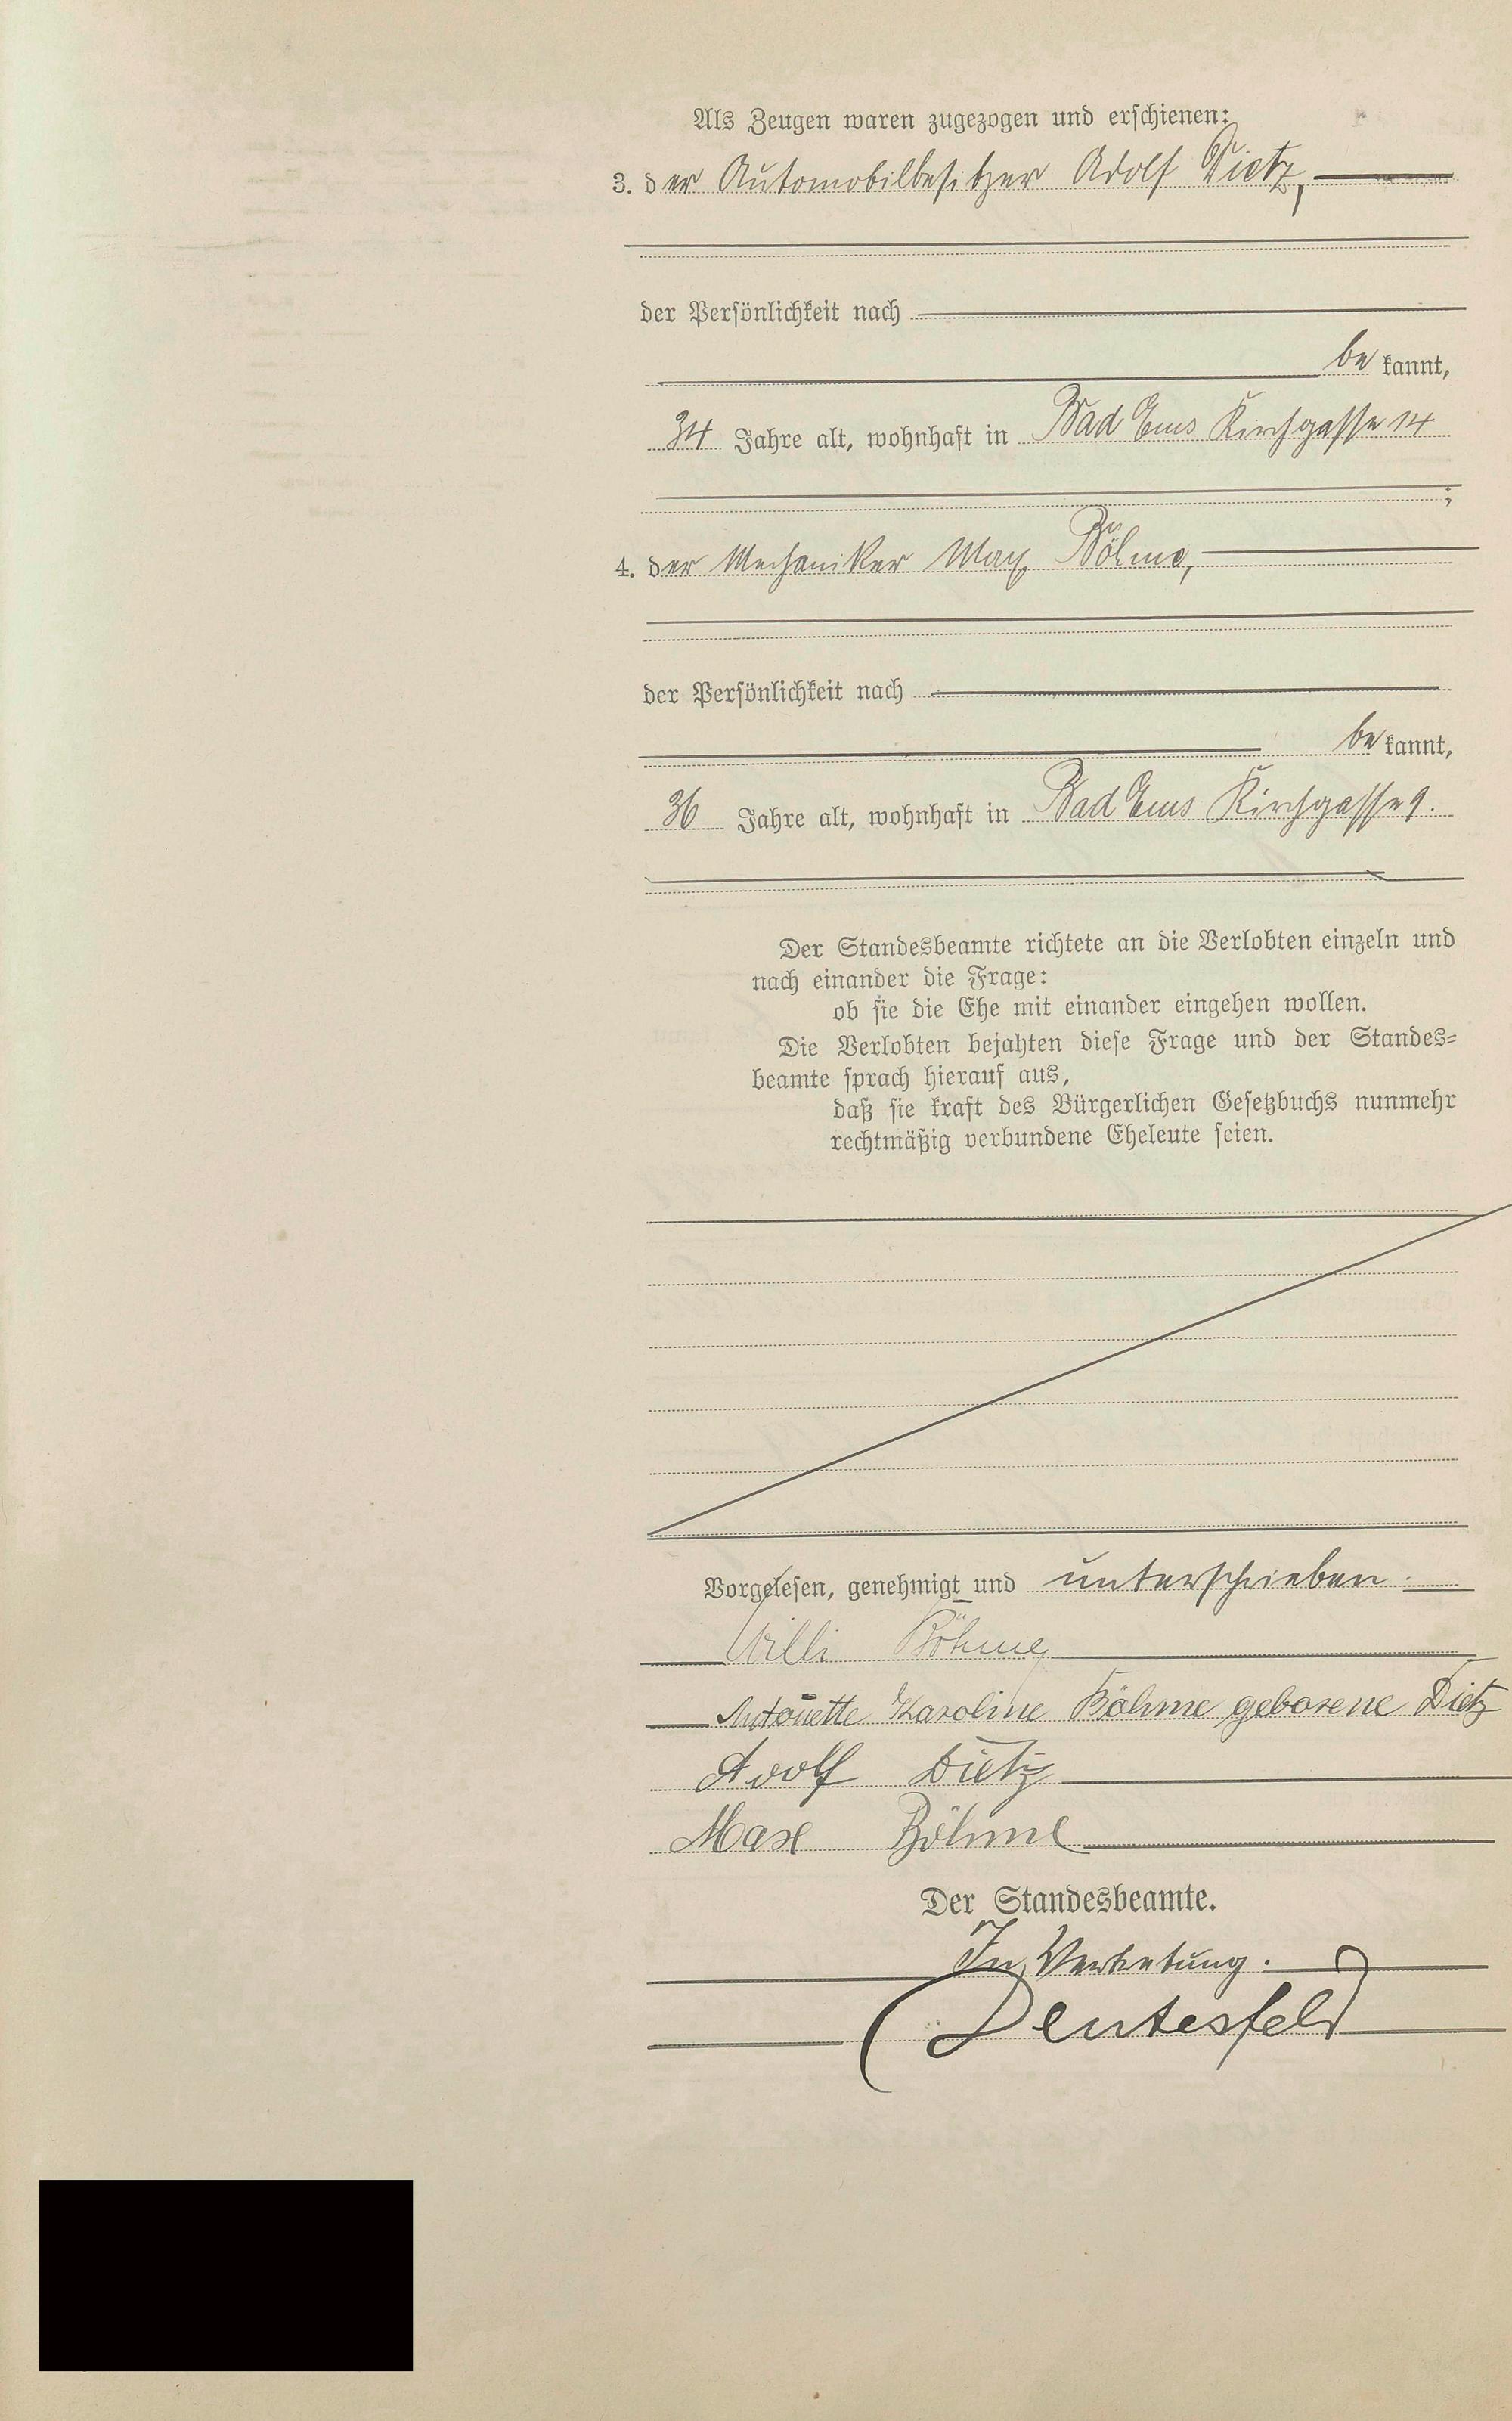 Als Zeugen waren zugezogen und erschienen:
3. der Automobilbesitzer Adolf Dietz,
der Persönlichkeit nach
be kannt,
34 Jahre alt, wohnhaft in Bad Ems Kirchgasse 14
;
4. der Mechaniker Max Böhme,
der Persönlichkeit nach
be kannt,
36 Jahre alt, wohnhaft in Bad Ems Kirchgasse 9.
Der Standesbeamte richtete an die Verlobten einzeln und
nach einander die Frage:
ob sie die Ehe mit einander eingehen wollen.
Die Verlobten bejahten diese Frage und der Standes-
beamte sprach hierauf aus,
daß sie kraft des Bürgerlichen Gesetzbuchs nunmehr
rechtmäßig verbundene Eheleute seien.
Vorgelesen, genehmigt und unterschrieben.
Willi Böhme
Antonette Karoline Böhme geborene Dietz
Adolf Dietz
Max Böhme
Der Standesbeamte.
In Vertretung.